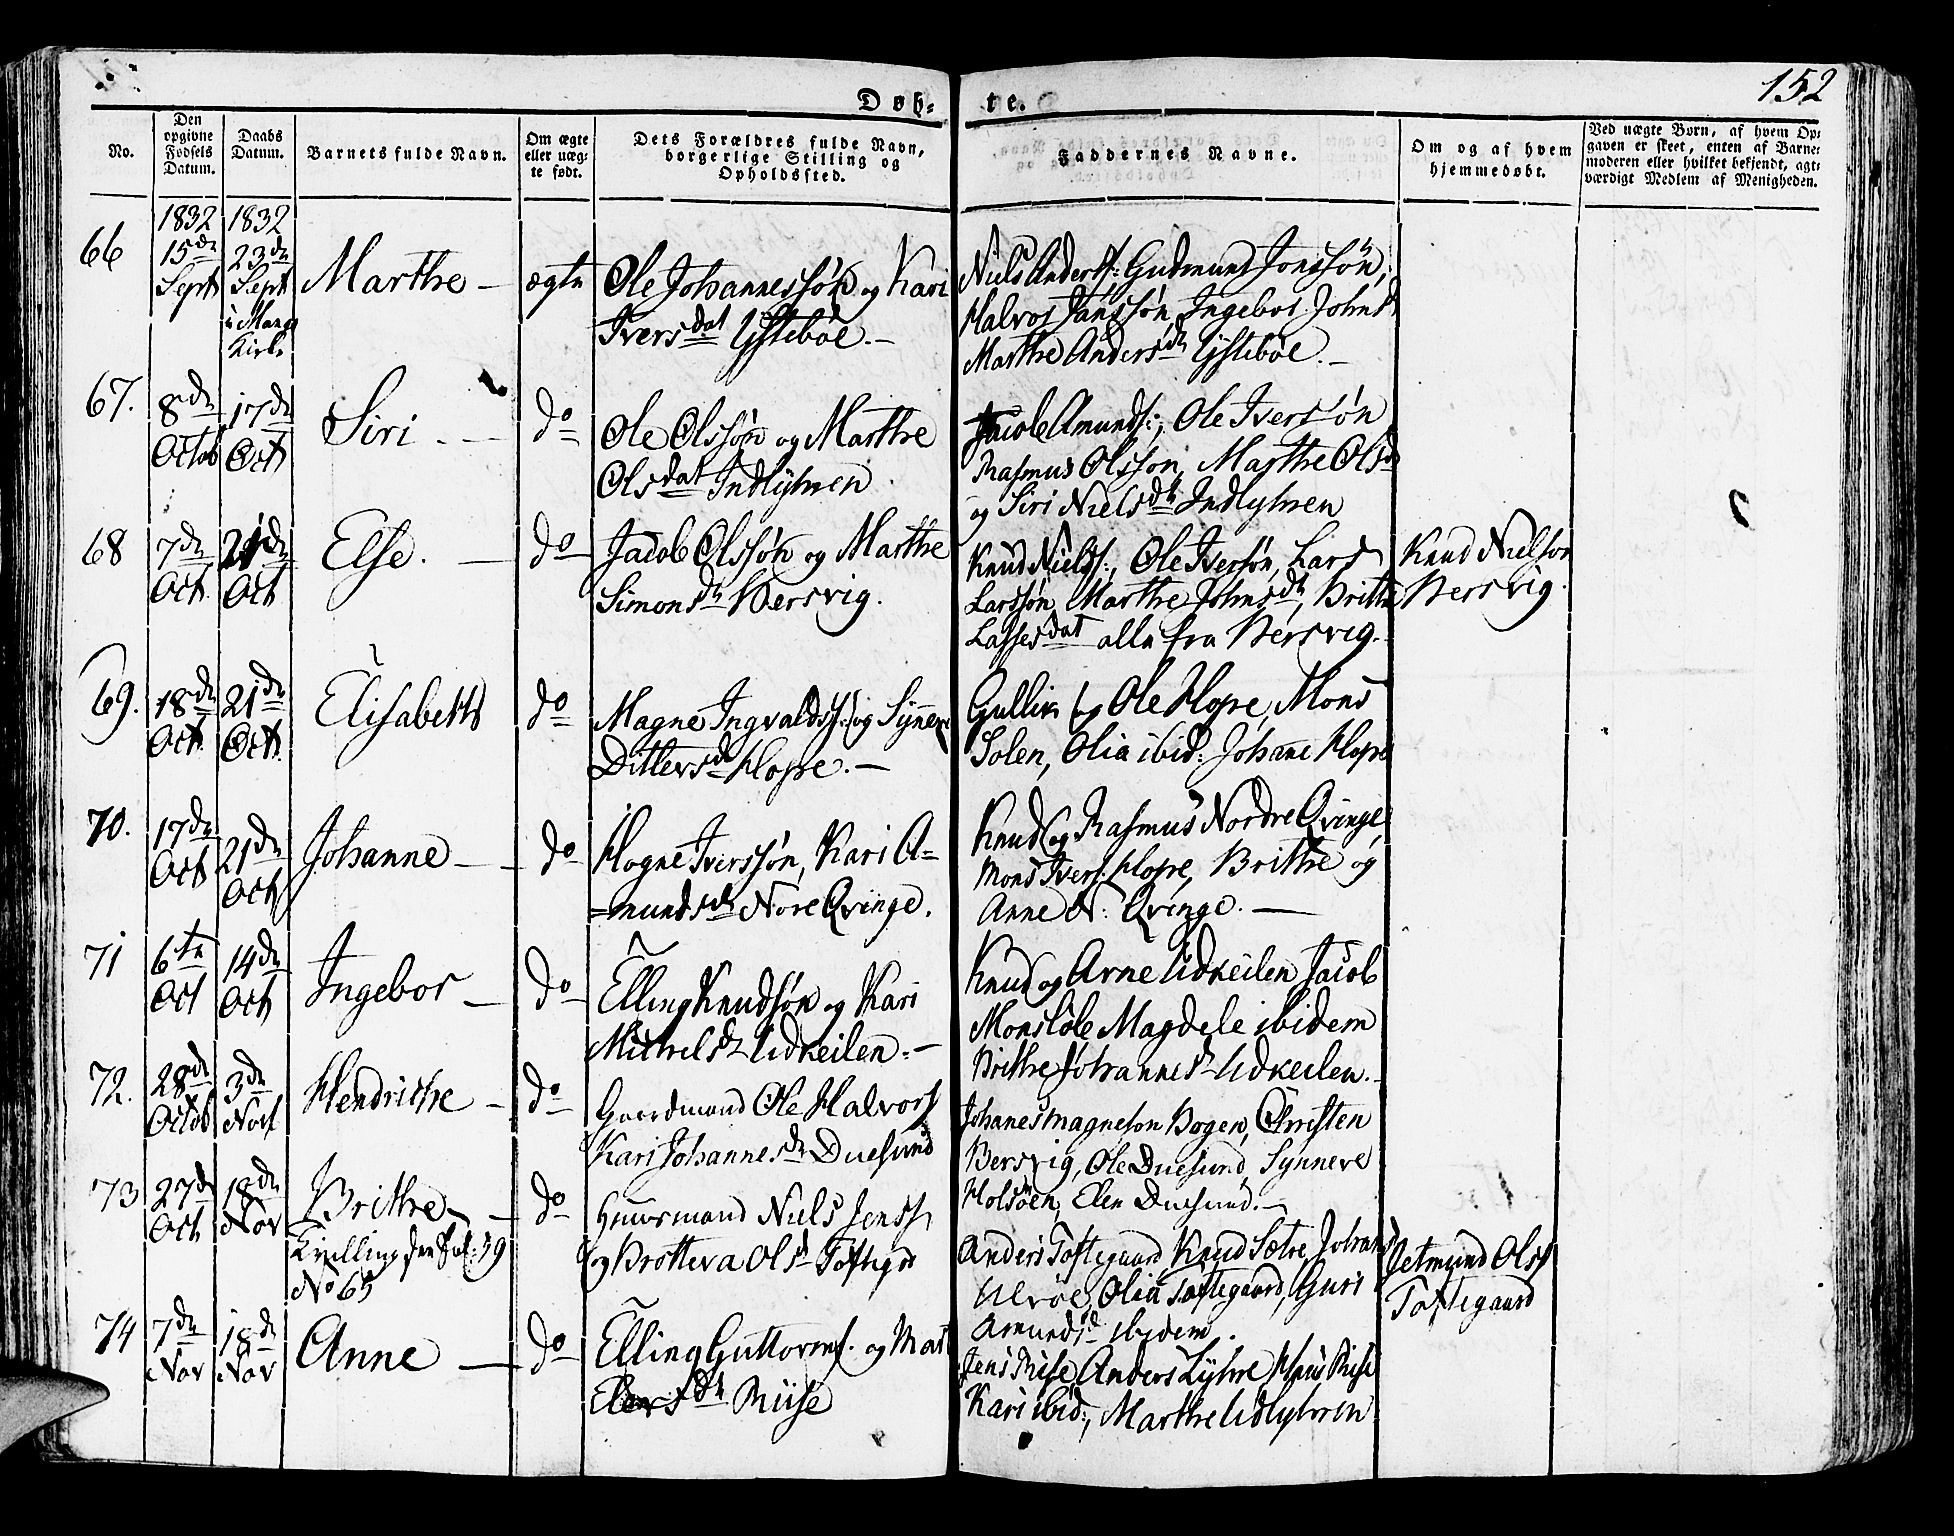 152
Døb-
te.
No.
Den opgivne Fødsels Datum.
Daabs Datum.
Barnets fulde Navn.
Om ægte eller uæg-te født.
Dets Forældres fulde Navn, borgerlige Stilling og Opholdssted.
Faddernes Navne.
Om og af hvem hjemmedøbt.
Ved uægte Børn, af hvem Op-gaven er skeet, enten af Barne-moderen eller hvilket bekjendt, agt-værdigt Medlem af Menigheden.
66
1832 15de Sept
1832 23de Sept i Kirk
Marthe
ægte
Ole Johannessøn og Kari
Iversdat Ystebøe.
Niels Anders: Gudmund Jonssøn,
Halvor Janssøn Ingebor Johnsd
Marthe Andersdr Ystebøe.
67.
8de Octob
17de Oct
Siri
do
Ole Olssøn og Marthe
Olsdat Indlyhren
Jacob Amunds:, Ole Iverssøn
Rasmus Olsson, Marthe Olsdr
og Siri Nielsdr Indlyhren
68
7de Oct.
21de Oct
Else.
do
Jacob Olssøn og Marthe
Simonsdr Bersvig.
Knud Niels:, Ole Iversøn, Lars
Larssøn, Marthe Johnsdr, Britte
Lassesdat alle fra Bersvig.
Knud Nielson
Bersvig.
69.
18de Oct.
21de Oct.
Elisabeth
do
Magne Ingvaldss: og Synneve
Ditlersd Hope.
Gullik og Ole Hope, Mons
Solen, Olia ibid: Johane Hope
70.
17de Oct
21de Oct
Johanne
do
Hogne Iverssøn, Kari A=
=mundsdr Nore Qvinge.
Knud og Rasmus Nordre Qvinge,
Mons Ivers: Hope, Brithe og
Anne N: Qvinge.
71
6te Oct
14de Oct
Ingebor
do
Elling Knudsøn og Kari
Michelsdr Udkeilen.
Knud og Arne Udkeilen, Jacob
Monsløb Magdele ibidem
Brithe Johannesdr Udkeilen.
72.
28de Octob
3de Nov
Hendrithe
do
Gaardmand Ole Halvors
Kari Johannesdr Duesund
Johanes Magneson Bogen, Christen
Bersvig, Ole Duesund, Synneve
Holsøen, Elen Duesund.
73
27d Oct
18de Nov
Brithe
Tvilling fol: 39
No 65
do
Huusmand Niels Jenss
og Brotteva Olsd Toftegrd
Anders Toftegaard, Knud Sætre, Johans
Ulvøe, Olia Toftegaard, Guri
Amundsd ibidem.
Jetmund Olss
Toftegaard
74
7de Nov
18d Nov
Anne
do
Elling Guttorms. og Mar
Elersdr Riise
Jens Rise, Anders Lyhre Hans Rise
Kari ibid:, Marthe Udlyhren